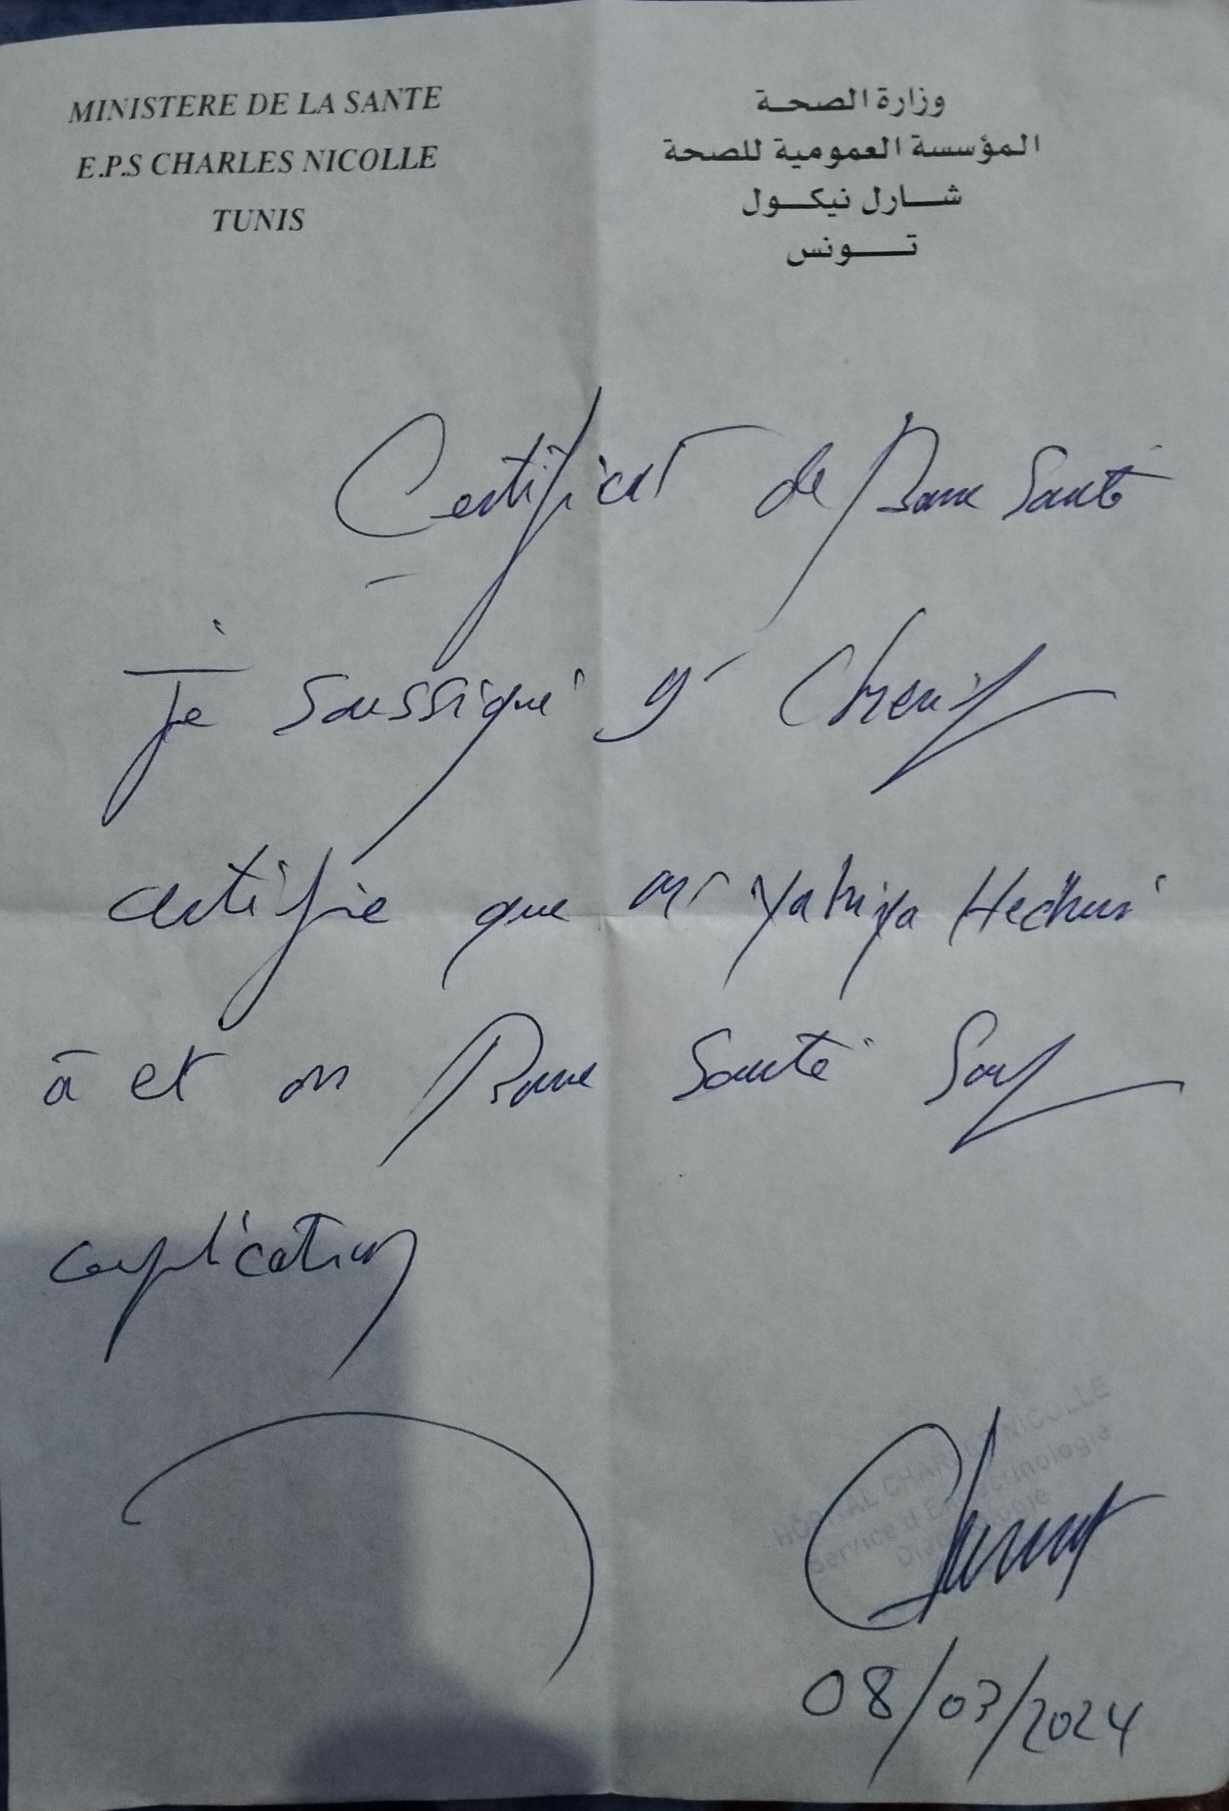 MINISTERE DE LA SANTE
E.P.S CHARLES NICOLLE
TUNIS
وزارة الصحة
المؤسسة العمومية للصحة
شارل نيكول
تونس
Certificat de Bonne Santé
je soussigné Dr Cherif
certifie que Mr Yahiya
à et en Bonne Santé Sauf
complication
HOPITAL CHARLES NICOLLE
Service d'Endocrinologie
08/03/2024